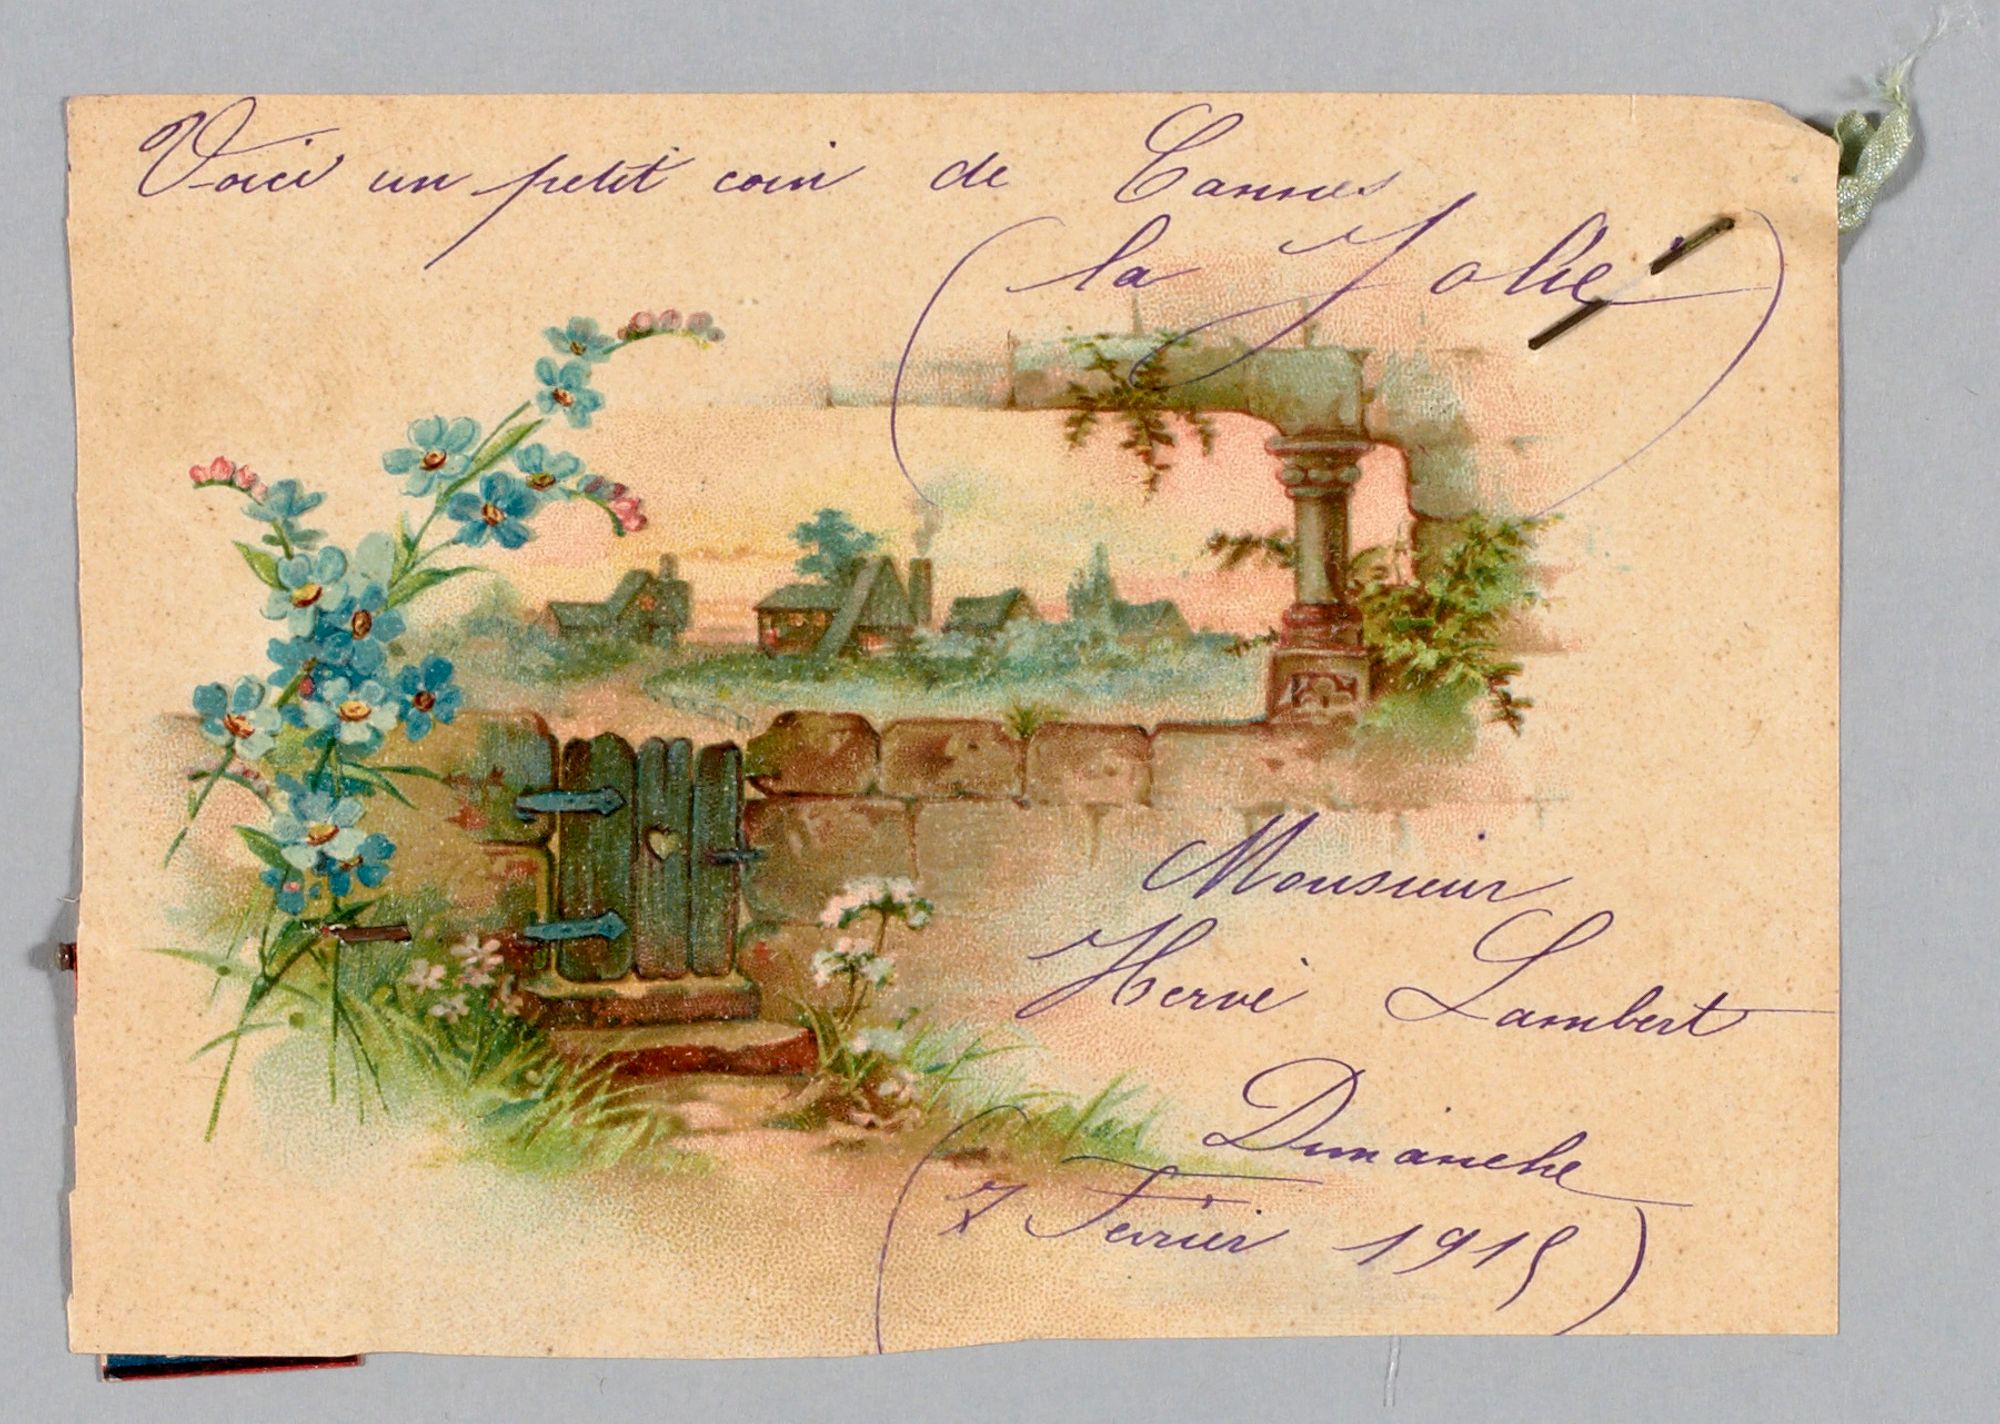 Voici un petit coin de Cannes
(la Jolie)
Monsieur
Hervé Lambert
Dimanche
(7 Février 1915)